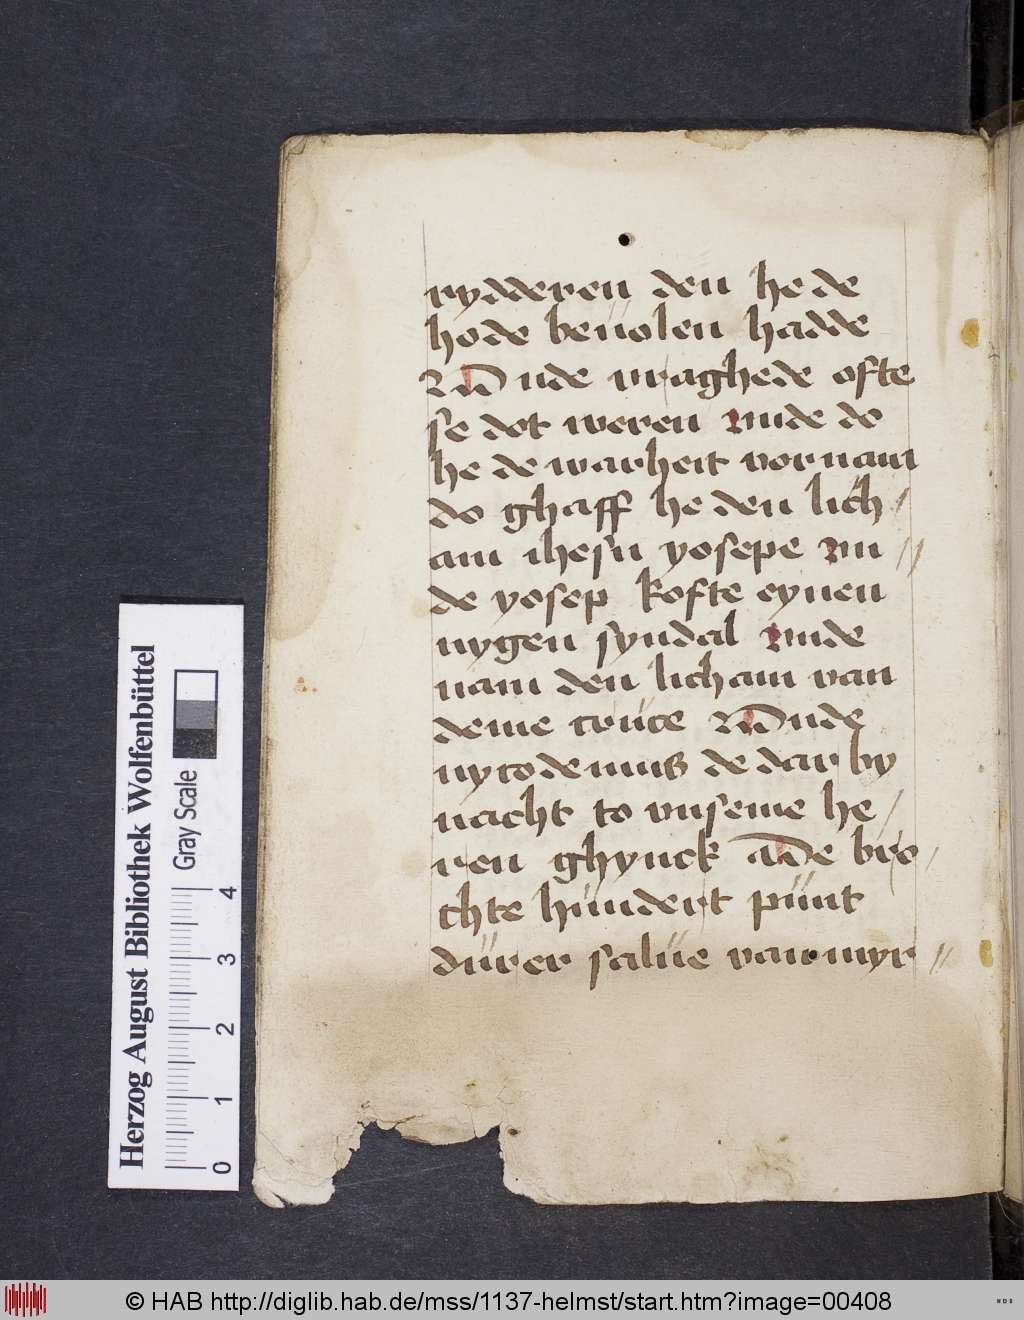 rydderen den he de
hode beuolen hadde
Unde vraghede ofte
se dot weren vnde do
he de warheit vornam
do ghaff he den lich
am ihesu yosepe vn
de yosep kofte eynen
nygen syndal vnde
nam den licham van
deme cruce Unde
nycodemus de dar by
nacht to vnseme he
ren ghynck de bro
chte hundert punt
durer salue van myr
Herzog August Bibliothek Wolfenbüttel
Gray Scale
0 1 2 3 4
© HAB http://diglib.hab.de/mss/1137-helmst/start.htm?image=00408